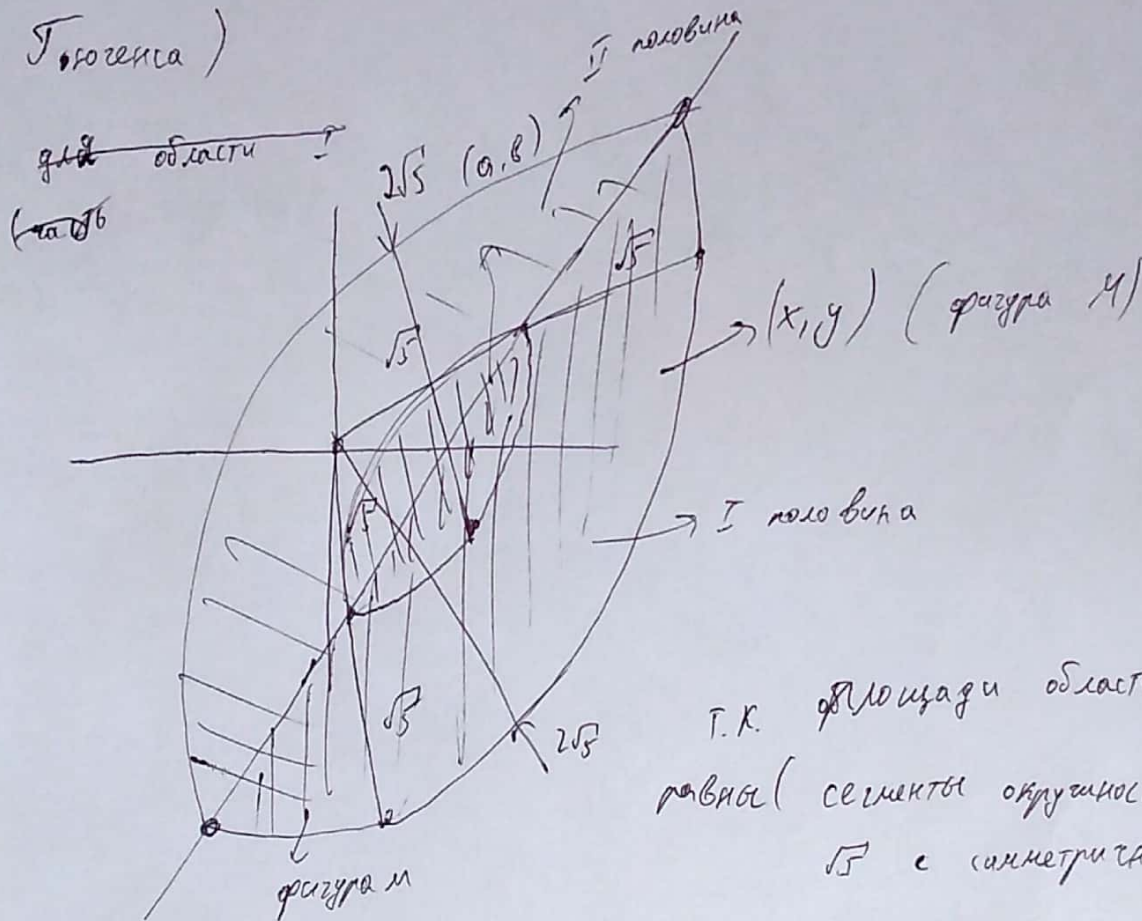 Гюгенса)
для области I
(часть
II половина
2√5 (a,b)
√5
√5
(x,y) (фигура М)
√5
I половина
√5
2√5
фигура М
Т.К. площади област
равны (сегменты окружнос
√5 с симметрич